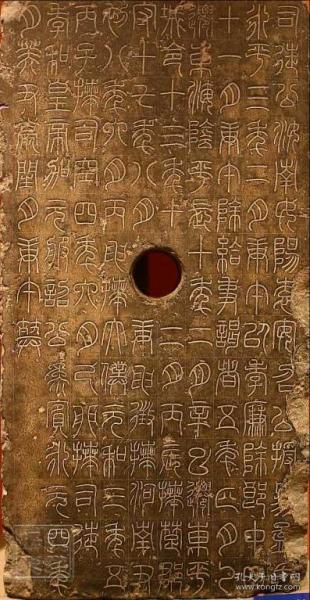 司徒公汝南女陽袁安召公授易孟
永平三年二月庚午以孝廉除郎中
十一月庚午除給事謁者五年正月乙
遷東海陰平長十年二月辛巳遷東平
城令十三年十二月丙辰拜楚郡
守十七年八月庚申徵拜河南尹
初八年六月丙申拜太僕元和三年五
丙子拜司空四年六月己卯拜司徒
孝和皇帝加元服詔公為賓永元四年
月癸丑薨閏月庚午葬